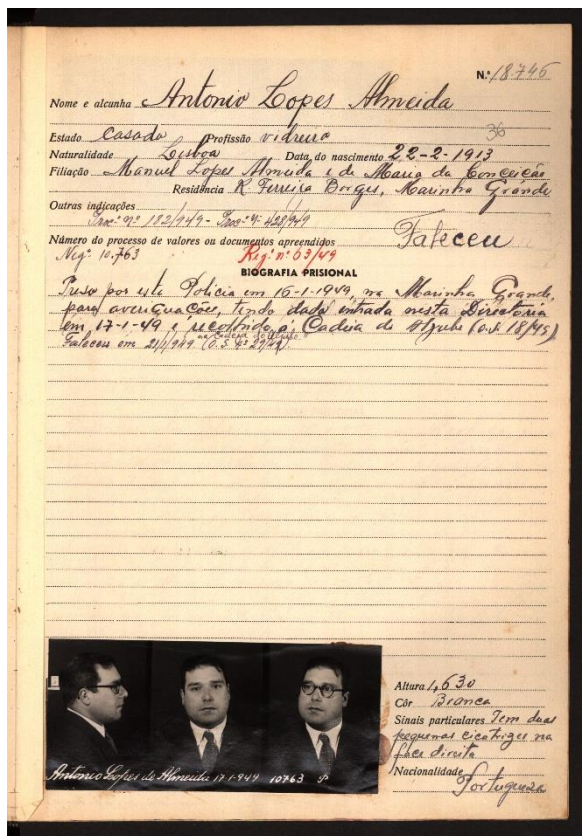 N.º 18.746
Nome e alcunha Antonio Lopes Almeida
36
Estado Casado Profissão vidreiro
Naturalidade Lisboa Data do nascimento 22-2-1913
Filiação Manuel Lopes Almeida e de Maria da Conceição
Residência R. Ferreira Borges, Marinha Grande
Outras indicações
Proc.º nº 182/949 - Proc.º nº 428/949
Faleceu
Número do processo de valores ou documentos apreendidos
Neg.º 10.763 Reg. nº 63/49
BIOGRAFIA PRISIONAL
Preso por esta Policia em 16-1-1949, na Marinha Grande,
para averiguações, tendo dado entrada nesta Directoria
em 17-1-49 e recolhido á Cadeia do Aljube (O.S. 18/49)
na Cadeia do Aljube
Faleceu em 21/1/949 (O.S. nº 29/49)
Altura 1,630
Côr Branca
Sinais particulares Tem duas
pequenas cicatrizes na
face direita
Nacionalidade
Portuguesa
Antonio Lopes de Almeida 17-1-949 10763